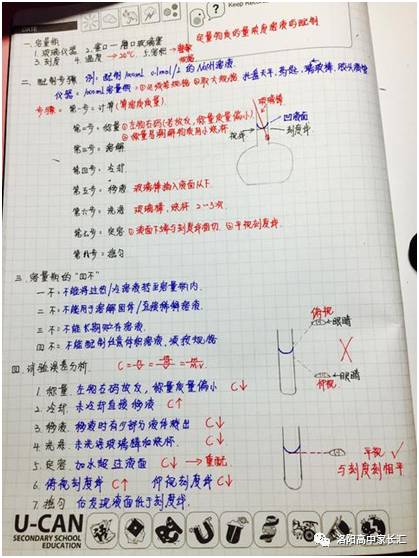 DATE
Keep Recor
定量物质的量浓度溶液的配制
一. 容量瓶
1. 玻璃仪器 2. 塞口一磨口玻璃塞
3. 刻度 4. 温度→20℃ 5. 容积→
二. 配制步骤 例: 配制100ml 0.1mol/L的NaOH溶液.
仪器: 100ml容量瓶 托盘天平, 药匙, 烧杯, 玻璃棒, 胶头滴管
步骤: 第一步: 计算(算溶质质量).
第二步: 称量 ①左物右码(若放反, 称量质量偏小)
②称量易潮解物质用小烧杯
第三步: 溶解
第四步: 冷却
第五步: 移液 玻璃棒插入液面以下.
第六步: 洗涤 玻璃棒, 烧杯. 2-3次
第七步: 定容 ①液面下缘与刻度线相切. ②平视刻度线.
第八步: 摇匀
玻璃棒
凹液面
视线
刻度线
三. 容量瓶的"四不"
一不: 不能将过热/冷溶液转至容量瓶内.
二不: 不能用于溶解固体/直接稀释溶液.
三不: 不能长期贮存溶液.
四不: 不能配制任意体积溶液, 须按规格
四. 试验误差分析
1. 称量. 左物右码放反, 称量质量偏小 C↓
2. 冷却. 未冷却直接移液 C↑
3. 移液. 移液时有少部分液体溅出 C↓
4. 洗涤. 未洗涤玻璃棒和烧杯. C↓
5. 定容 加水超过液面 C↓ → 重配
6. 俯视刻度线 C↑ 仰视刻度线 C↓
7. 摇匀 后发现液面低于刻度线.
俯视
眼睛
眼睛
仰视
平视 √
与刻度到相平
U-CAN
SECONDARY SCHOOL
EDUCATION
洛阳高中家长汇